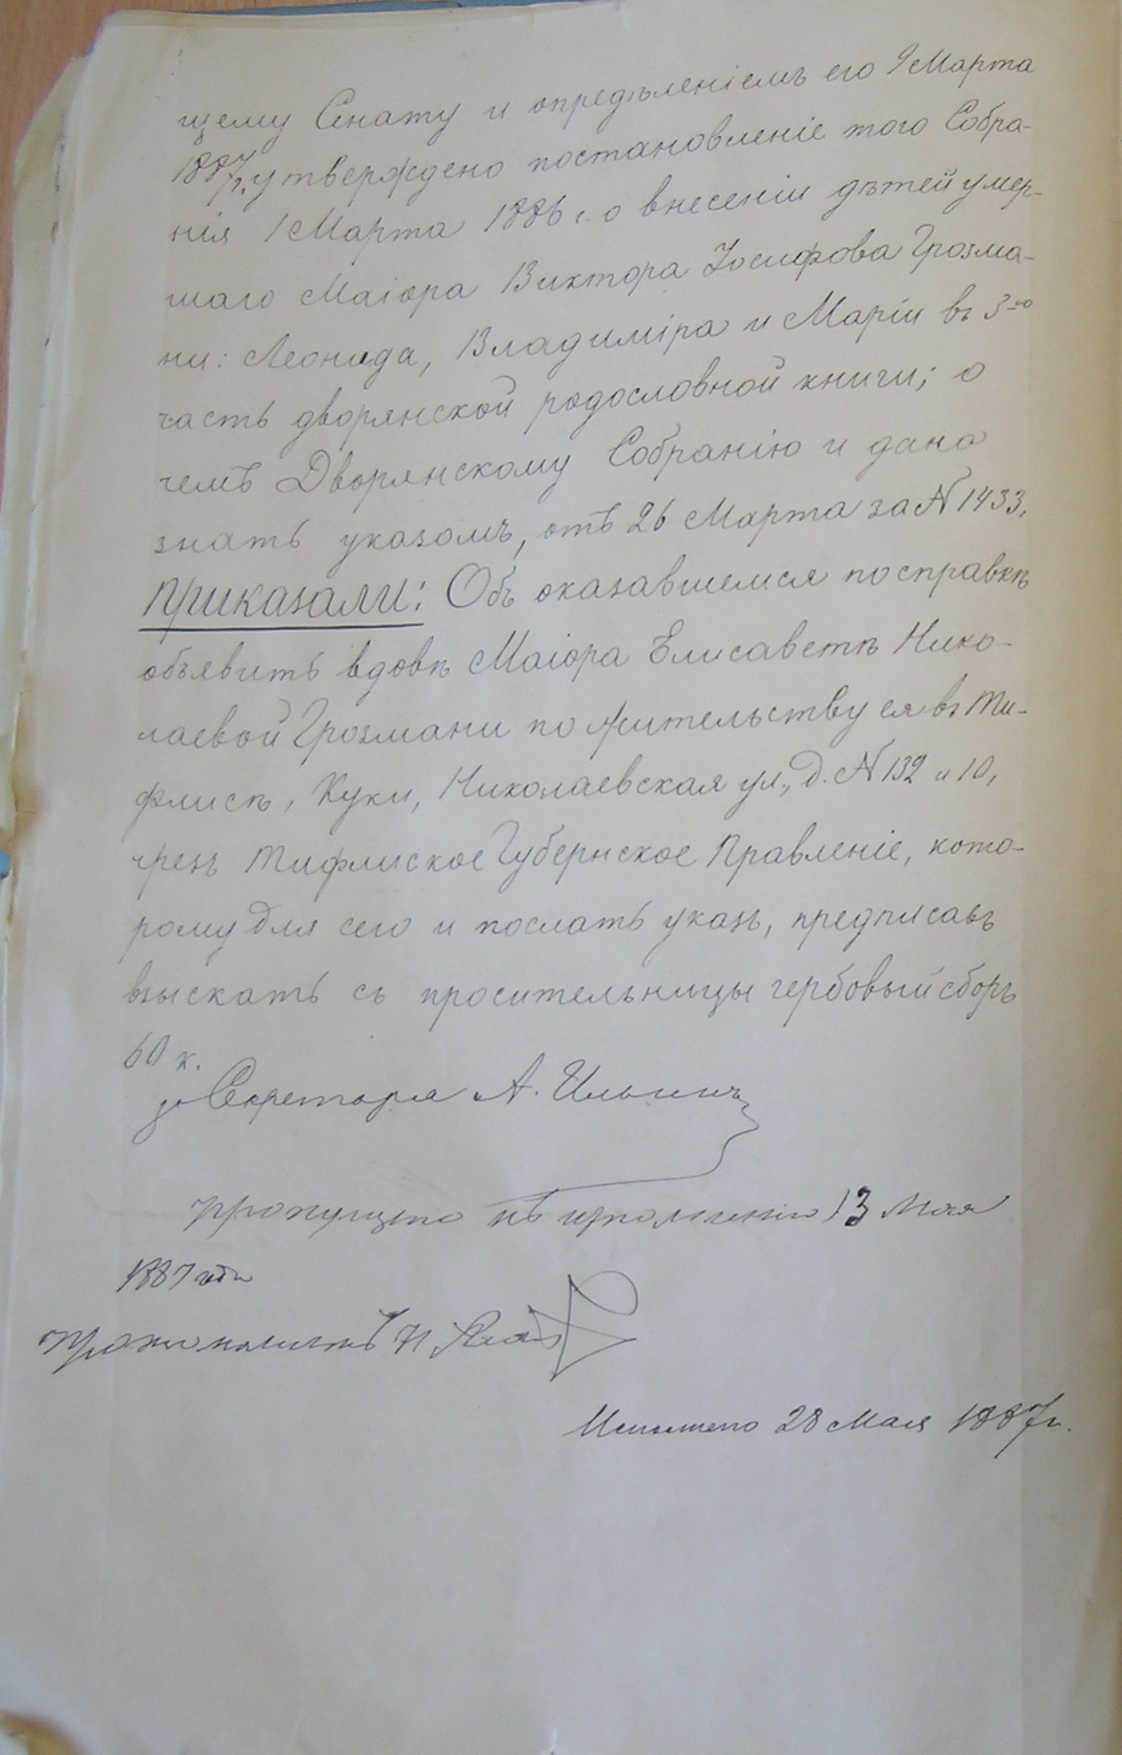 щему Сенату и опредѣленіемъ его 9 Марта
1887 г. утверждено постановленіе того Собра-
нія 1 Марта 1886 г. о внесеніи дѣтей умер-
шаго Маіора Виктора Іосифова Грозма-
ни: Леонида, Владиміра и Маріи въ 3-ю
часть дворянской родословной книги; о
чемъ Дворянскому Собранію и дано
знать указомъ, отъ 26 Марта за № 1433.
Приказали: Объ оказавшемся по справкѣ
объявить вдовѣ Маіора Елисаветѣ Нико-
лаевой Грозмани по жительству ея въ Ти-
флисѣ, Куки, Николаевская ул., д. № 132 и 10,
чрезъ Тифлиское Губернское Правленіе, кото-
рому для сего и послать указъ, предписавъ
взыскать съ просительницы гербовый сборъ
60 к.
за Секретаря А. Ильинъ
пропущено къ исполненію 13 Мая
1887 года
протоколистъ Н.
Исполнено 28 Мая 1887 г.